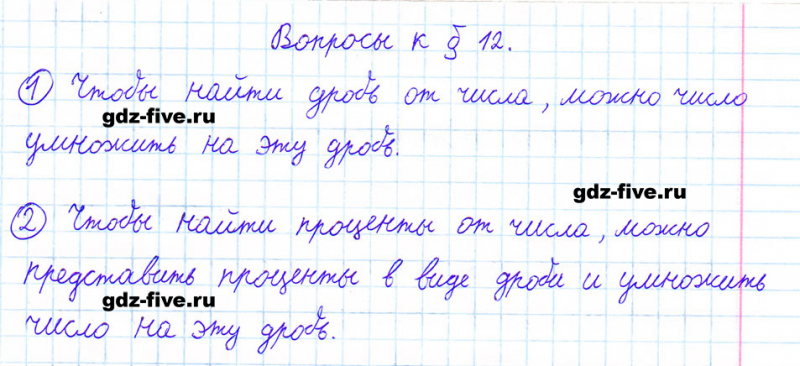 Вопросы к § 12.
1) Чтобы найти дробь от числа, можно число
gdz-five.ru
умножить на эту дробь.
gdz-five.ru
2) Чтобы найти проценты от числа, можно
представить проценты в виде дроби и умножить
gdz-five.ru
число на эту дробь.